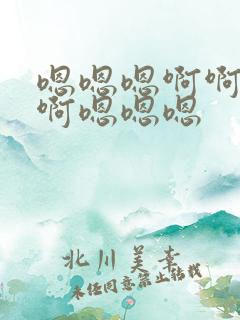 嗯嗯嗯啊啊
啊嗯嗯嗯
北川美素
未经同意禁止转载